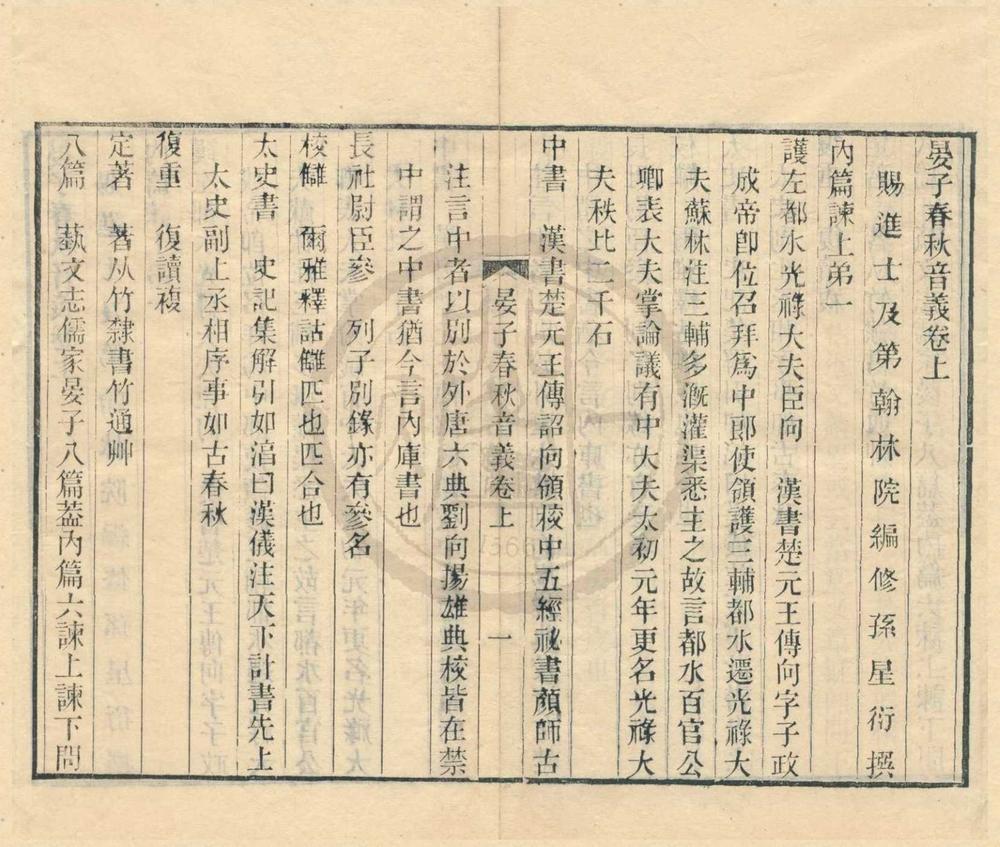 晏子春秋音義卷上
賜進士及第翰林院編修孫星衍撰
內篇諫上弟一
護左都水光祿大夫臣向　漢書楚元王傳向字子政
成帝卽位召拜爲中郎使領護三輔都水遷光祿大
夫蘇林注三輔多漑灌渠悉主之故言都水百官公
卿表大夫掌論議有中大夫太初元年更名光祿大
夫秩比二千石
中書　漢書楚元王傳詔向領校中五經祕書顏師古
晏子春秋音義卷上　一
注言中者以別於外唐六典劉向揚雄典校皆在禁
中謂之中書猶今言內庫書也
長社尉臣參　列子別錄亦有參名
校讎　爾雅釋詁讎匹也匹合也
太史書　史記集解引如淳曰漢儀注天下計書先上
太史副上丞相序事如古春秋
復重　復讀複
定著　著从竹隸書竹通艸
八篇　蓺文志儒家晏子八篇葢內篇六諫上諫下問